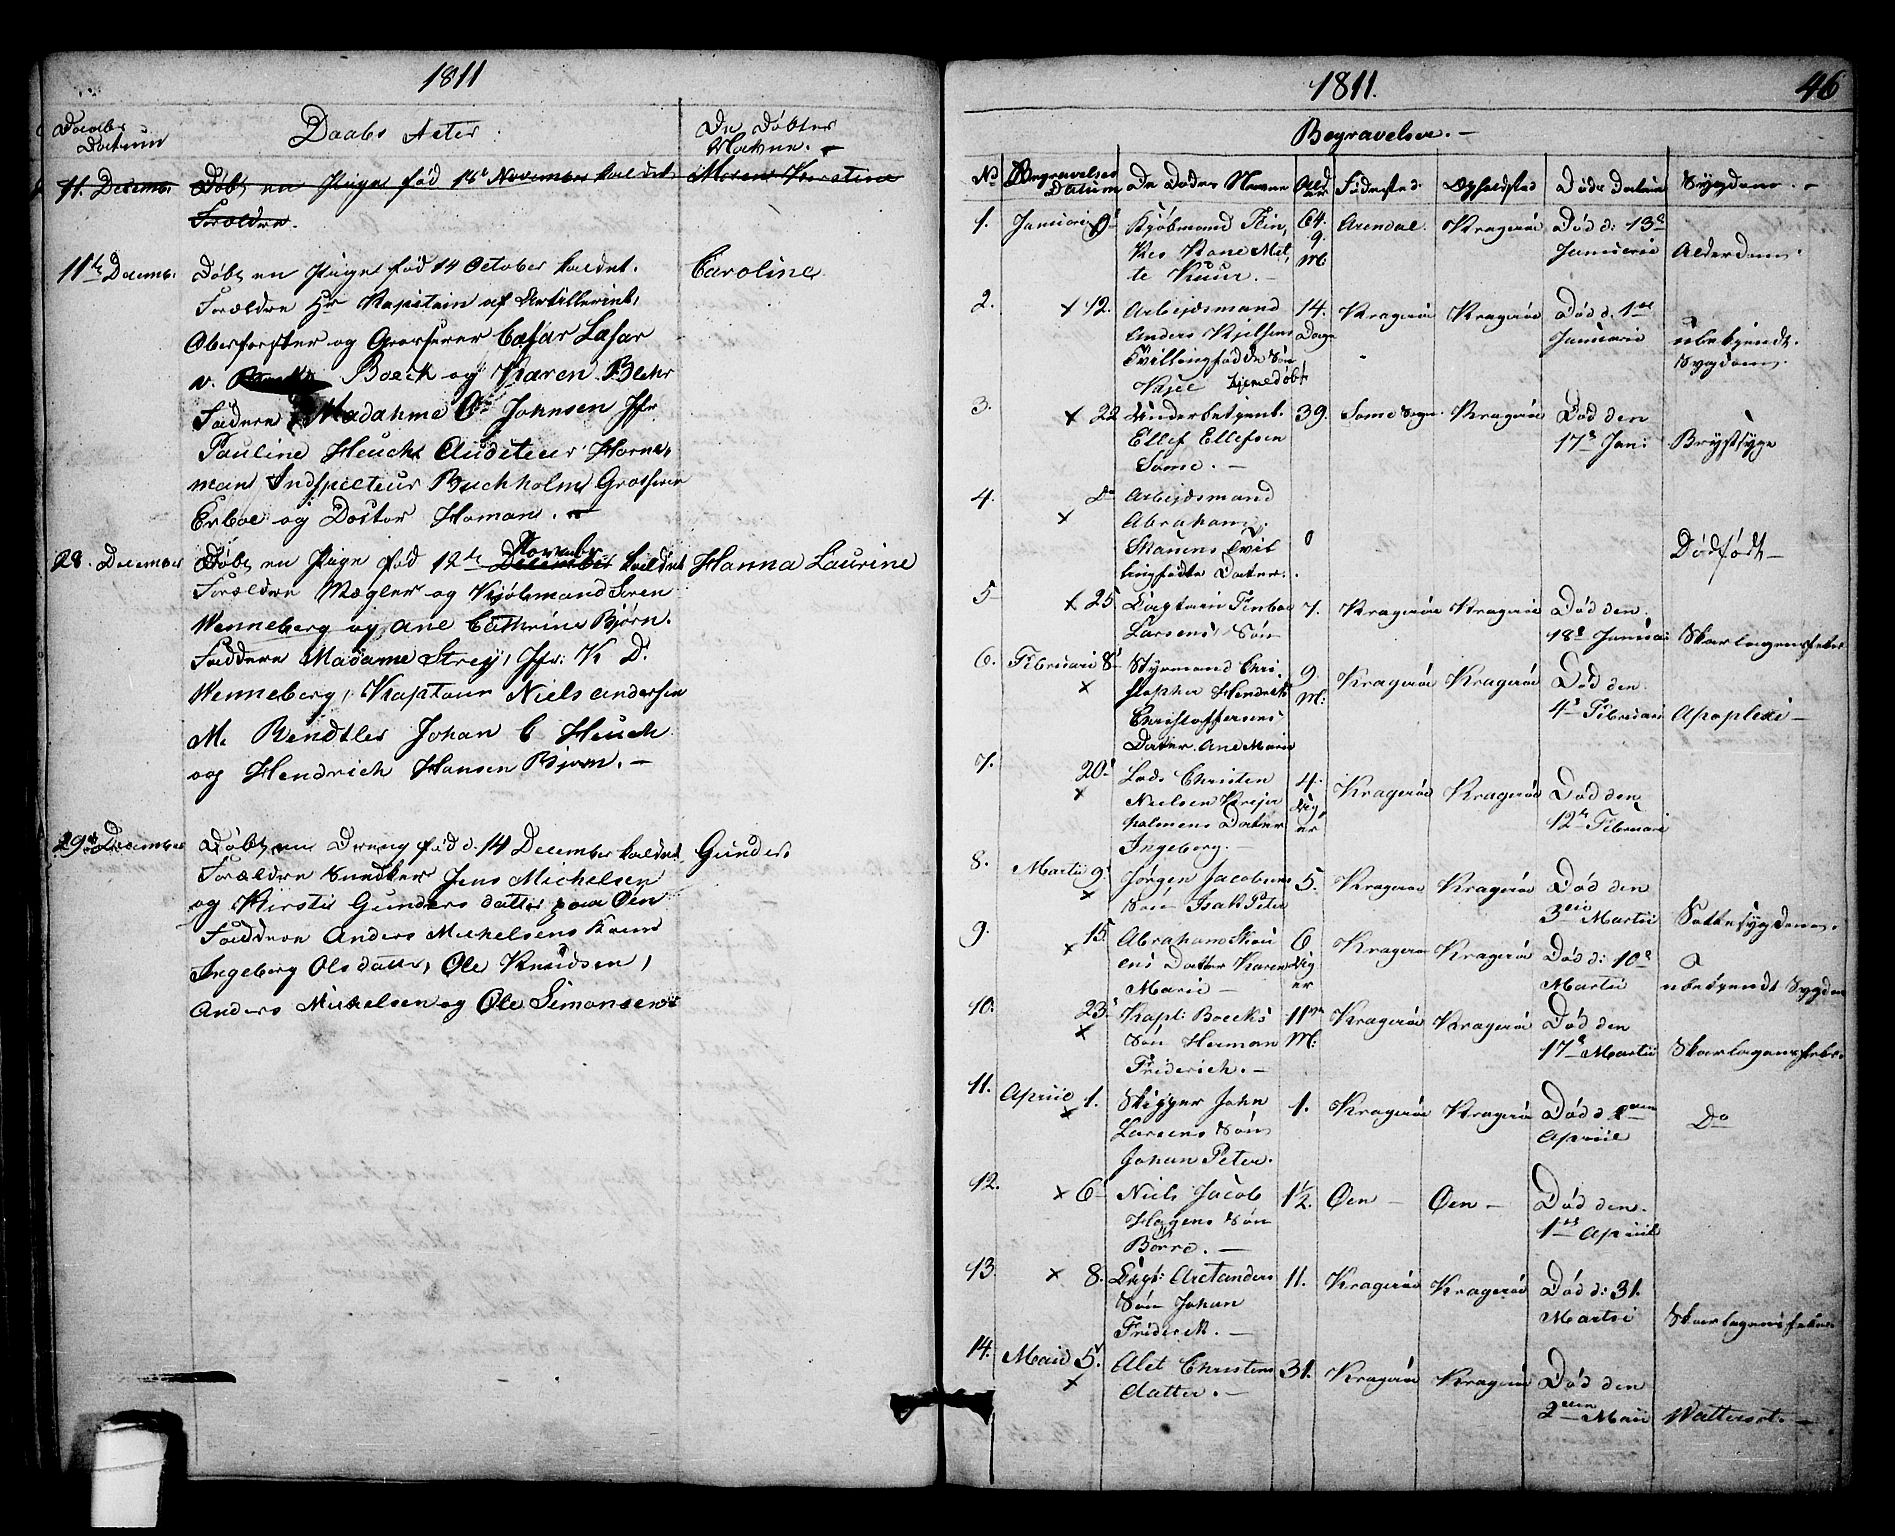 1811
Daabs Datum
Daabs Acter
De Døbtes Navne.
11. Decemb. Døbt en Pige fød 18d November kaldet Maren Kirstine
Forældre.
11te Decemb. Døbt en Pige fød 14 October kaldet. Caroline
Forældre Hr Kapitain af Artilleriet,
Oberforster og Grosserer Cæsar Læsar
v. Boeck og Karen Blehr
Faddere Madahme Johnsen Jfr
Pauline Heuch Auditeur Horne-
man Indspecteur Buchholm Grosserer
Erboe og Doctor Homan.
28. December Døbt en Pige fød 12te November kaldet Hanna Laurine
Forældre Mægler og Kjøbmand Søren
Wenneberg og Ane Cathrine Bjørn.
Faddere Madame Streij, Jfr: K D.
Wenneberg, Kaptain Niels Andersen
M. Bendtler Johan C Heuch
og Hendrich Hansen Bjørn.
29de December Døbt en Dreng fød d. 14 December kaldet Gunder.
Forældre Snedker Jens Michelsen
og Kirstie Gunders datter paa Øen
Faddere Anders Michelsens Kone
Ingeborg Olsdatter, Ole Knudsen,
Anders Michelsen og Ole Simonsen
1811. 46
Begravelser.
No Begravelses Datum De Dødes Navne Alder Fødested. Opholdsted Døds Datum Sygdom.
1. Januari Kjøbmand Kone Met-
te Kuur. 64. 9. M: Arendal Kragerøe Død d: 13d Januarii Alderdom.
2. x 12. Arbeidsmand
Anders Kjelsens
Tvillingfødde Søn
hjemedøbt 14. Dage Kragerøe Kragerøe Død d. 1st Januarii ubekjendt. Sygdom.
3. x 22 Underbetjent.
Ellef Ellefsen
Some. 39. Some Sogn. Kragerøe Død den 17d Jan: Brystsyge
4. x Do Arbeidsmand
Abraham
Skauens Tvil
lingfødte Datter. 0 Dødfødt
5 x 25 Captain
Larsens Søn 7. Kragerøe Kragerøe Død den 18d Januari Skarlagensfeber
6. Februarii 8 x Styrmand Chri-
stopher Hendrich
Christoffersens
Datter. Ane Marie 9. M: Kragerøe Kragerøe Død den 4d Februari Apoplexi
7. 20. x Lods Christen
Nielsen
holmens Datter
Ingeborg. 4. Uger Kragerøe Kragerøe Død den 12te Februari
8. Martii 9. x Jørgen Jacobsens
Søn Isak Peter 5. Kragerøe Kragerøe Død den 3die Martii Sottesygdom.
9. x 15. Abraham Skau
ens Datter Karen
Marie 6 Uger Kragerøe Kragerøe Død d: 10d Martii ubekjendt Sygdom
10. 23. x Kapt: Boecks
Søn Herman
Friderich. 11 M: Kragerøe Kragerøe Død den 17d Martii Skarlagensfeber
11. Apriil x 1. Skipper John
Larsens Søn
Johan Peter. 1. Kragerøe Kragerøe Død d. Apriil Do
12. x 6 Niels Jacob
Hagens Søn
Børre. 1½. Øen Øen Død den 1ste Apriil
13. x 8.
Søn Johan
Friderick. 11. Kragerøe Kragerøe Død d: 31. Martii Skarlagensfeber
14. Maii 5. x Alet Christens
datter. 31. Kragerøe Kragerøe Død den 2den Maii Wattersot.